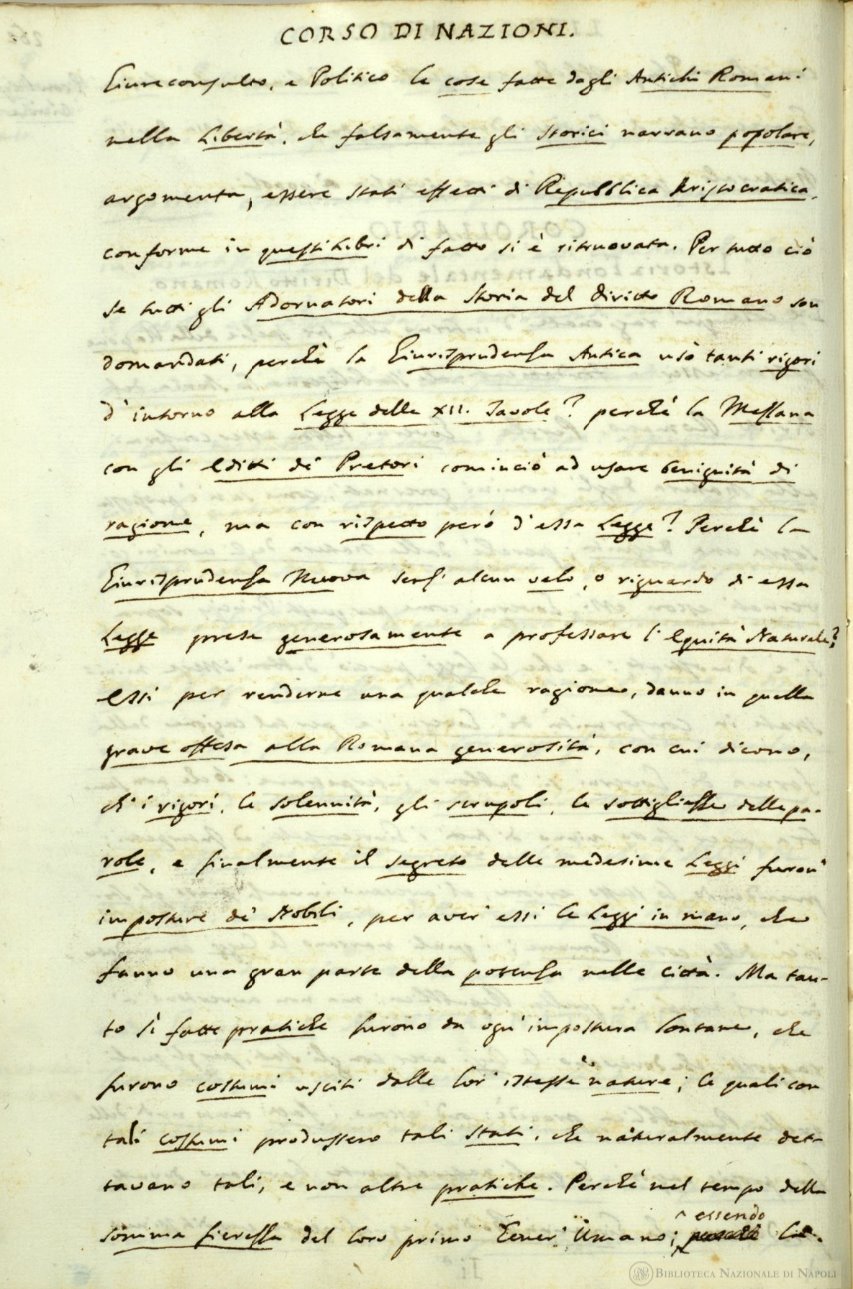 CORSO DI NAZIONI.
Giureconsulto, e Politico le cose fatte dagli Antichi Romani
nella Libertà, che falsamente gli Storici narrano popolare,
argomenta, essere stati effetti di Repubblica Aristocratica,
conforme in questi Libri di fatto si è ritruovata. Per tutto ciò
se tutti gli Adornatori della Storia del Diritto Romano son
domandati, perchè la Giurisprudenza Antica usò tanti rigori
d'intorno alla Legge delle XII. Tavole? perchè la Mezzana
con gli Editti de' Pretori cominciò ad usare benignità di
ragione, ma con rispetto però d'essa Legge? Perchè la
Giurisprudenza Nuova senz'alcun velo, o riguardo di essa
Legge prese generosamente a professare l'Equità Naturale?
Essi per renderne una qualche ragione, danno in quella
grave offesa alla Romana generosità, con cui dicono,
ch'i rigori, le solennità, gli scrupoli, le sottigliezze delle pa-
role, e finalmente il segreto delle medesime Leggi furon'
imposture de' Nobili, per aver' essi le Leggi in mano, che
fanno una gran parte della potenza nelle città. Ma tan-
to sì fatte pratiche furono da ogn'impostura lontane, che
furono costumi usciti dalle lor' istesse nature; le quali con
tali costumi produssero tali Stati, che naturalmente det-
tavano tali, e non altre pratiche. Perchè nel tempo della
somma fierezza del loro primo Gener' Umano; essendo
la
BIBLIOTECA NAZIONALE DI NAPOLI